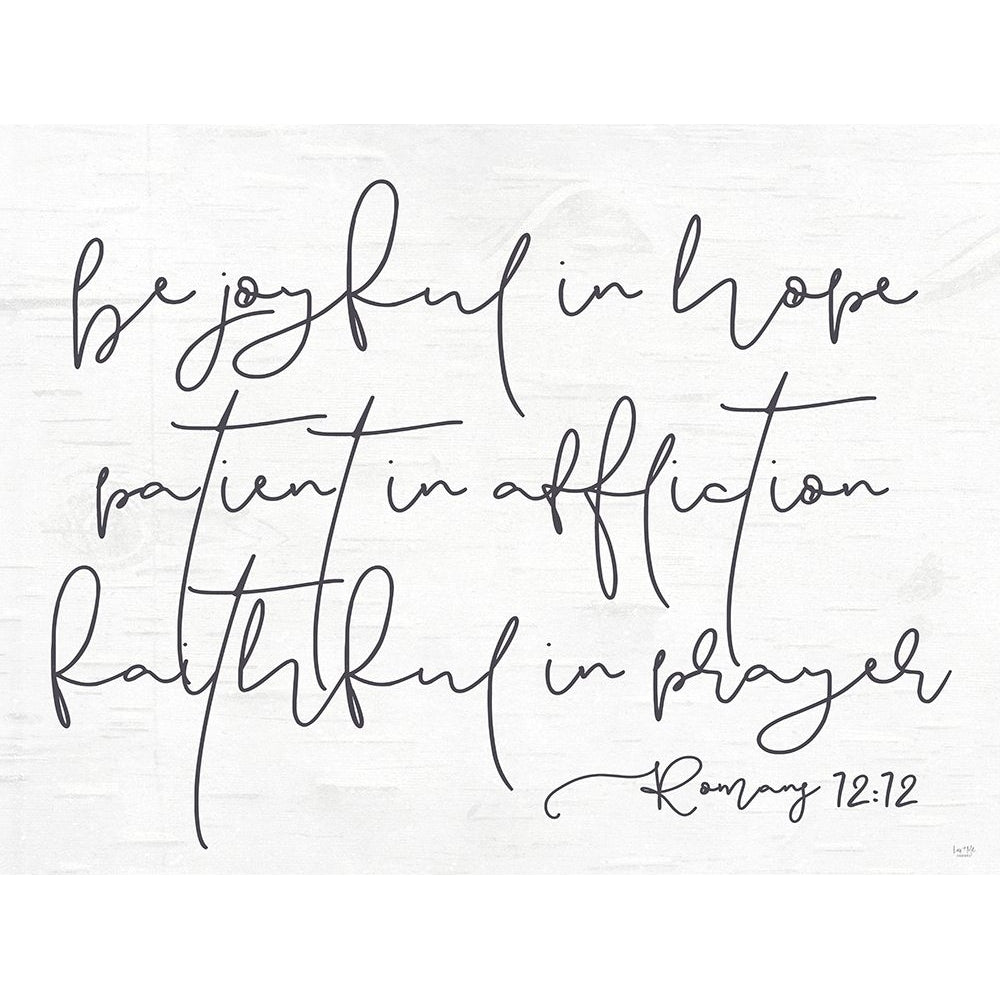 be joyful in hope
patient in affliction
faithful in prayer
Romans 12:12